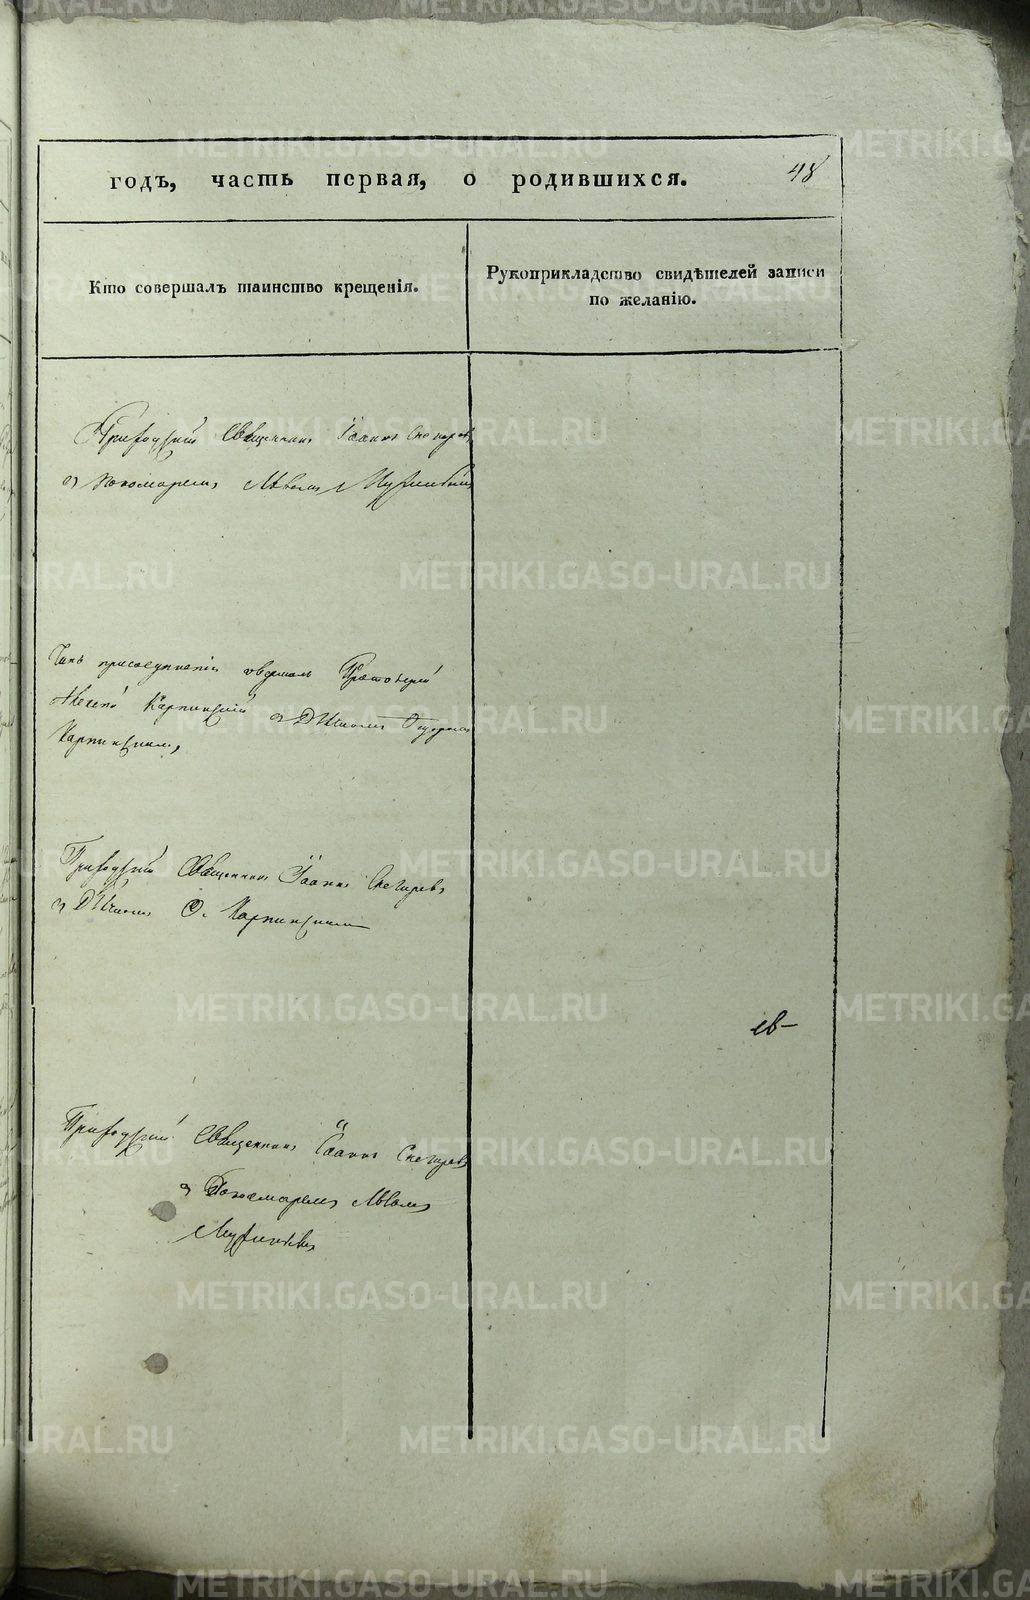 годъ, часть первая, о родившихся. 48
Кто совершалъ таинство крещенія.
Рукоприкладство свидѣтелей записи
по желанію.
Приходскій Священникъ Іоаннъ Снегирев
съ Пономаремъ
Чинъ присоединенія совершалъ Протоіерей
Алексій Карпинскій съ Дьячкомъ Ѳедоромъ
Карпинскимъ,
Приходскій Священникъ Іоаннъ Снегиревъ
съ Карпинскимъ
Приходскій Священникъ Іоаннъ Снегиревъ
съ Пономаремъ Львомъ
METRIKI.GASO-URAL.RU